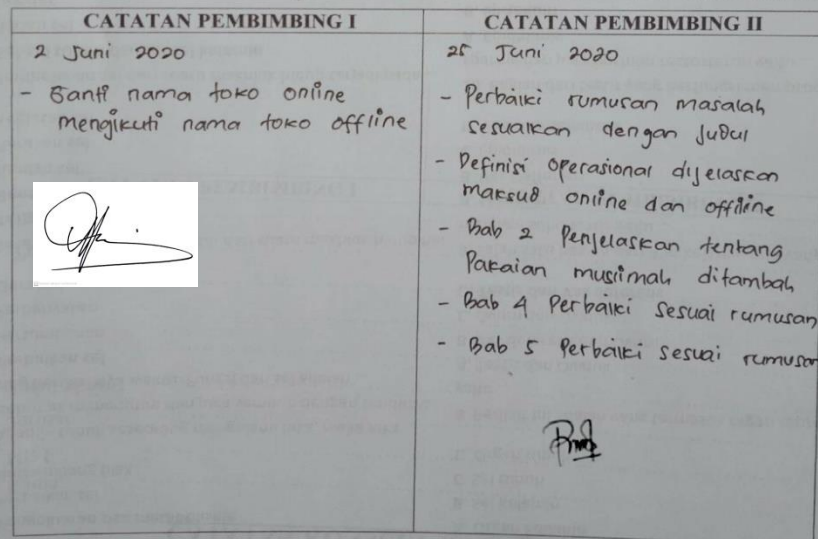 CATATAN PEMBIMBING I
2 Juni 2020
- Ganti nama toko online
mengikuti nama toko offline
CATATAN PEMBIMBING II
25 Juni 2020
- Perbaiki rumusan masalah
sesuaikan dengan judul
- Definisi operasional dijelaskan
maksud online dan offline
- Bab 2 Penjelaskan tentang
Pakaian muslimah ditambah
- Bab 4 Perbaiki sesuai rumusan
- Bab 5 Perbaiki sesuai rumusan